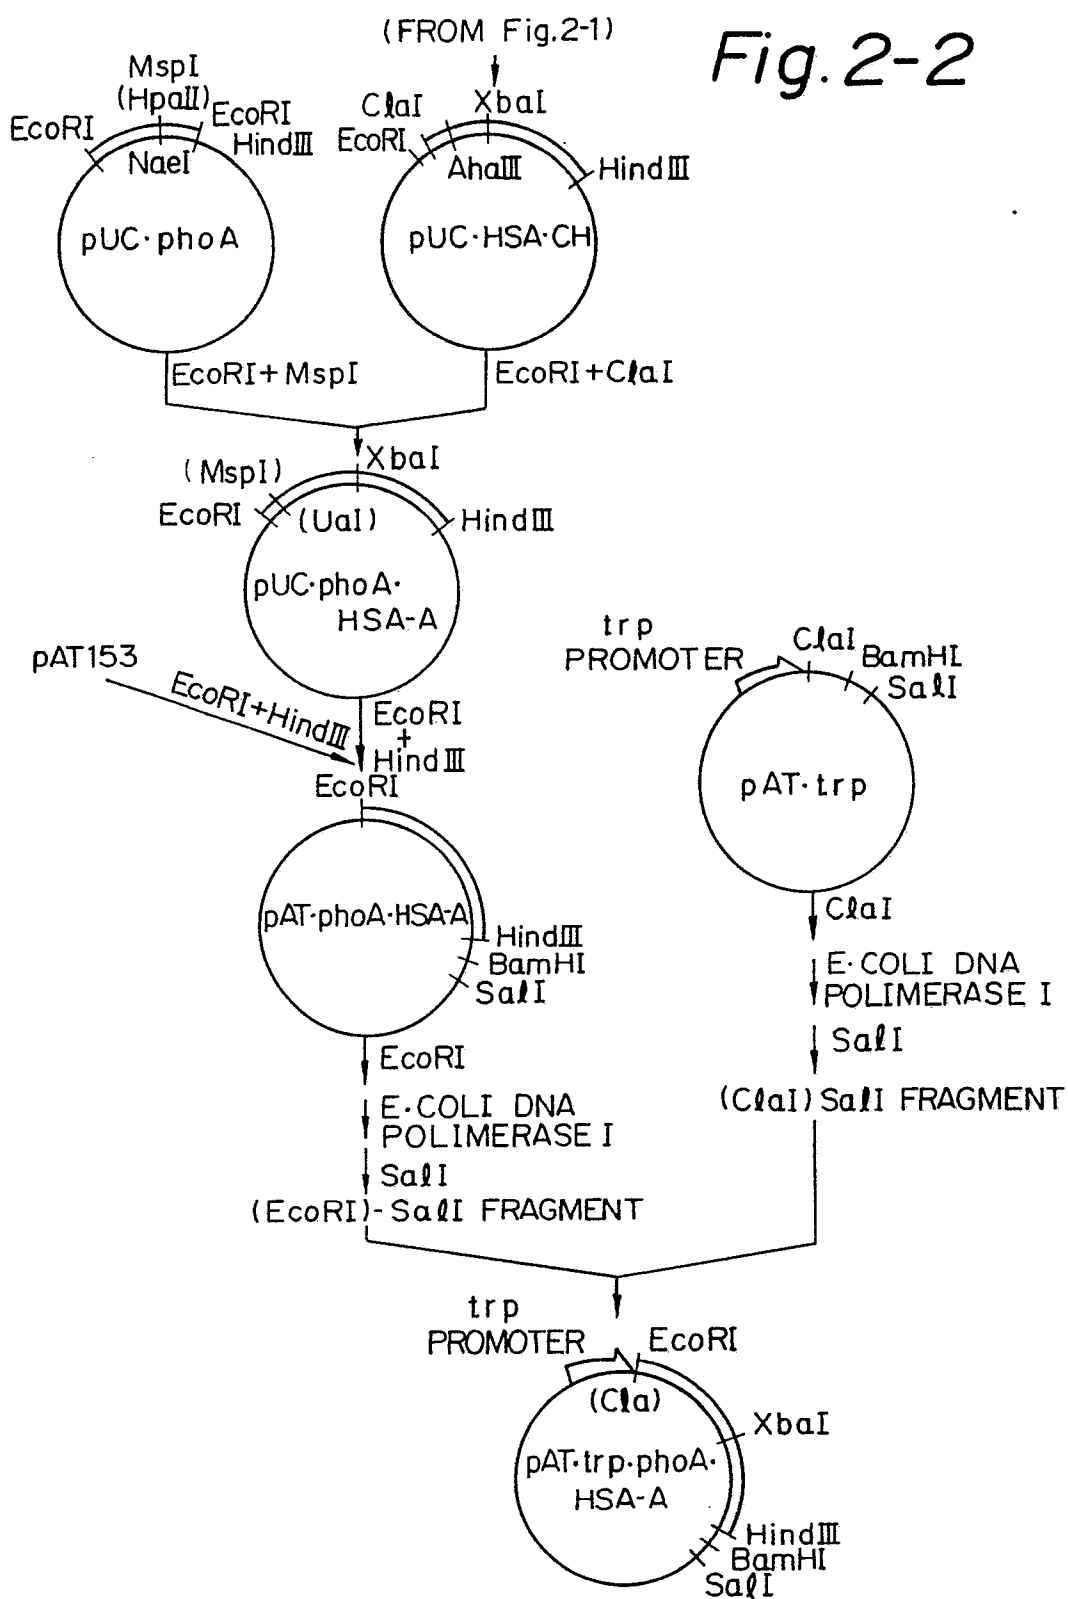 (FROM Fig.2-1)
Fig. 2-2
MspI
(HpaII)
EcoRI
EcoRI
HindIII
NaeI
pUC·phoA
ClaI
XbaI
EcoRI
AhaIII
HindIII
pUC·HSA·CH
EcoRI+MspI
EcoRI+ClaI
(MspI)
XbaI
EcoRI
(UaI)
HindIII
pUC·phoA·
HSA-A
pAT153
EcoRI+HindIII
EcoRI
+
HindIII
trp
PROMOTER
ClaI
BamHI
SalI
pAT·trp
EcoRI
pAT·phoA·HSA-A
HindIII
BamHI
SalI
ClaI
E·COLI DNA
POLIMERASE I
SalI
(ClaI) SalI FRAGMENT
EcoRI
E·COLI DNA
POLIMERASE I
SalI
(EcoRI)-SalI FRAGMENT
trp
PROMOTER
EcoRI
(Cla)
XbaI
pAT·trp·phoA·
HSA-A
HindIII
BamHI
SalI